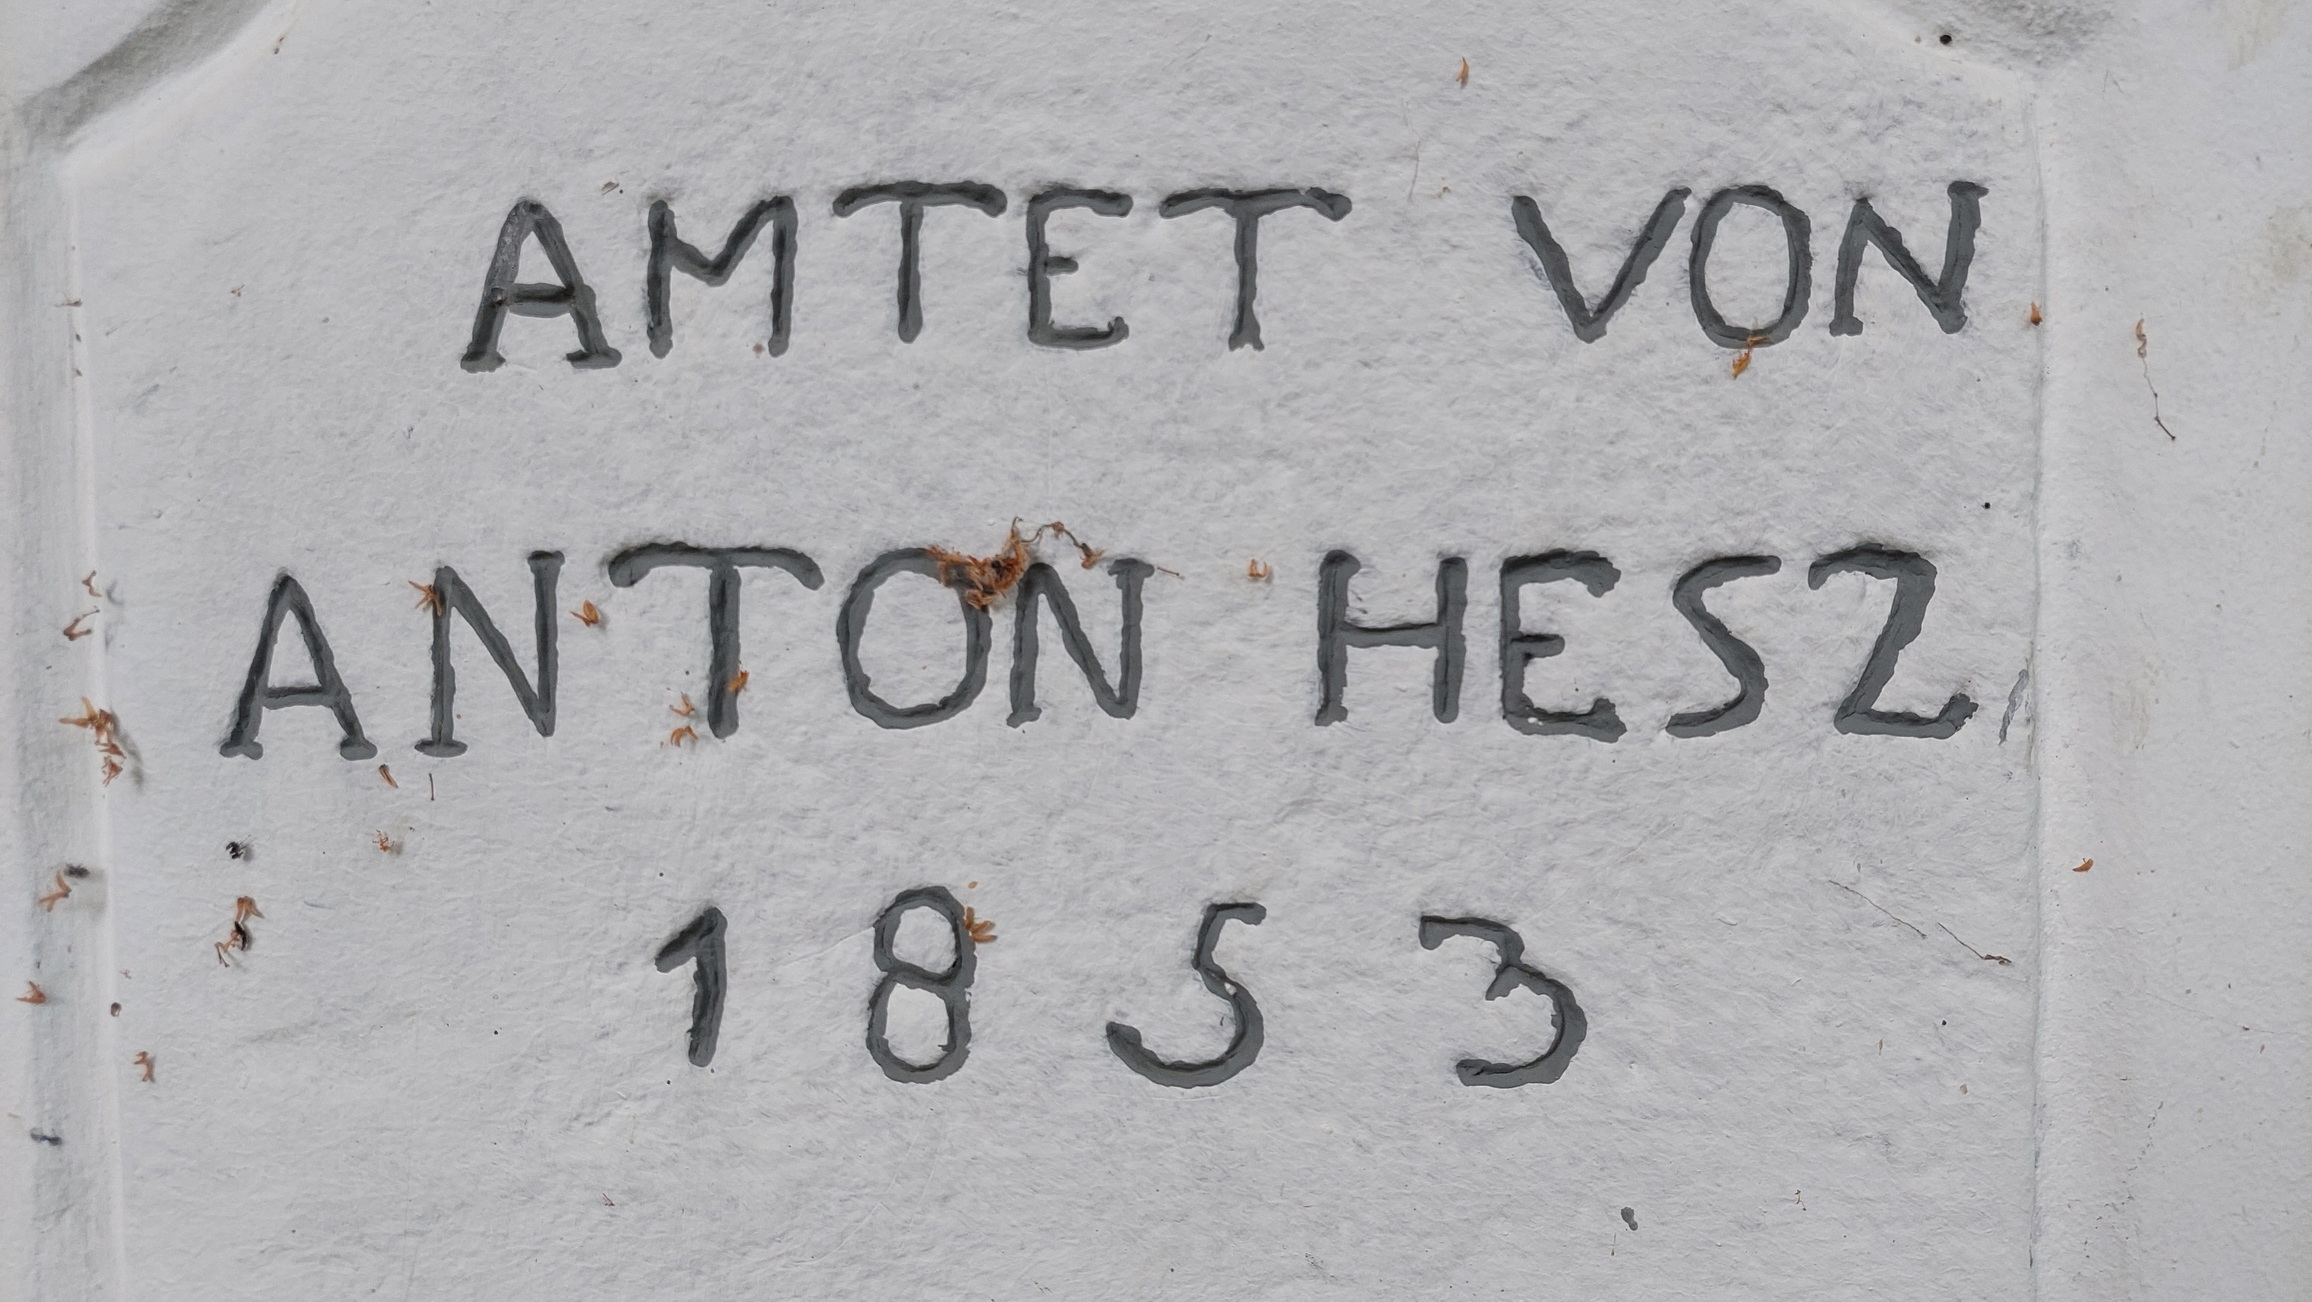 AMTET VON
ANTON HESZ
1853